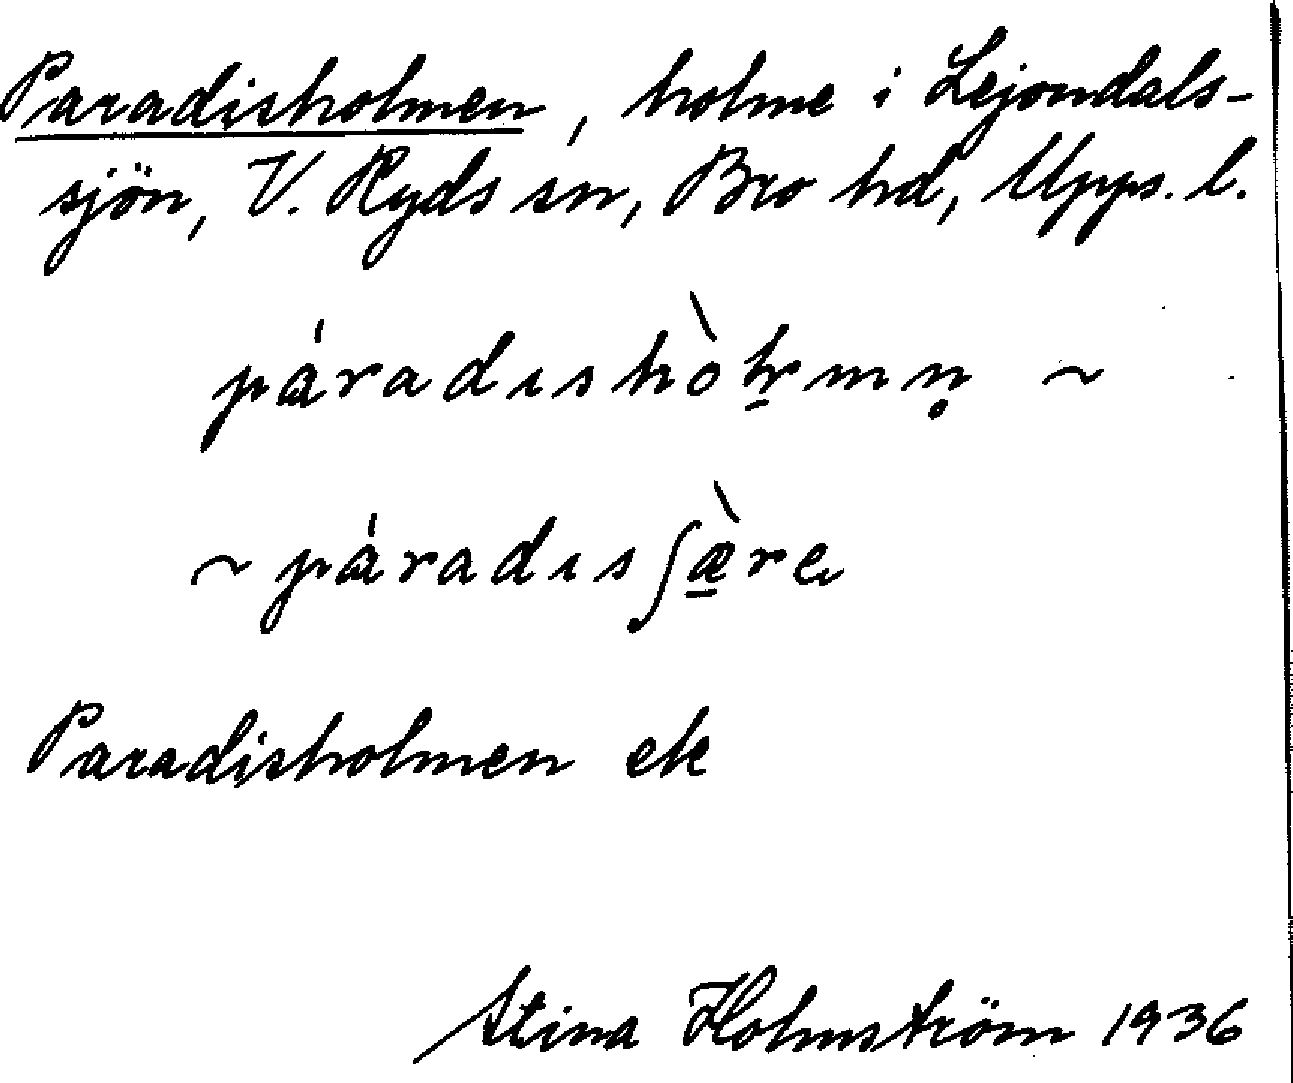 Paradisholmen, holme i Lejondals-
sjön, V. Ryds sn, Bro hd, Upps. l.
páradıshòl̠mn̥ ~
~ páradısʃæ̠̀re
Paradisholmen ek
Stina Holmström 1936